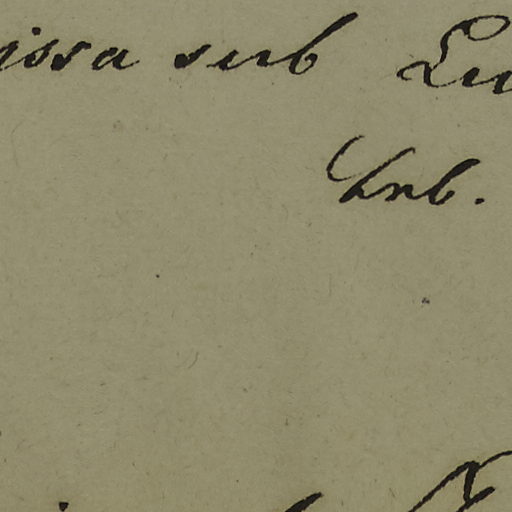 issa sub Lu
Urb.